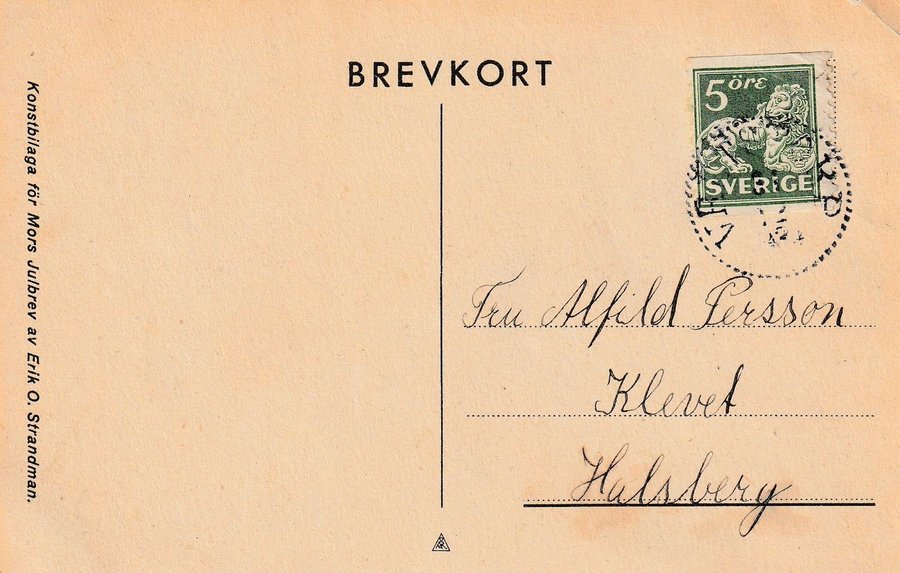 BREVKORT
5 öre
SVERIGE
Konstbilaga för Mors Julbrev av Erik O. Strandman.
Fru Alfild Persson
Klevet
Halsberg